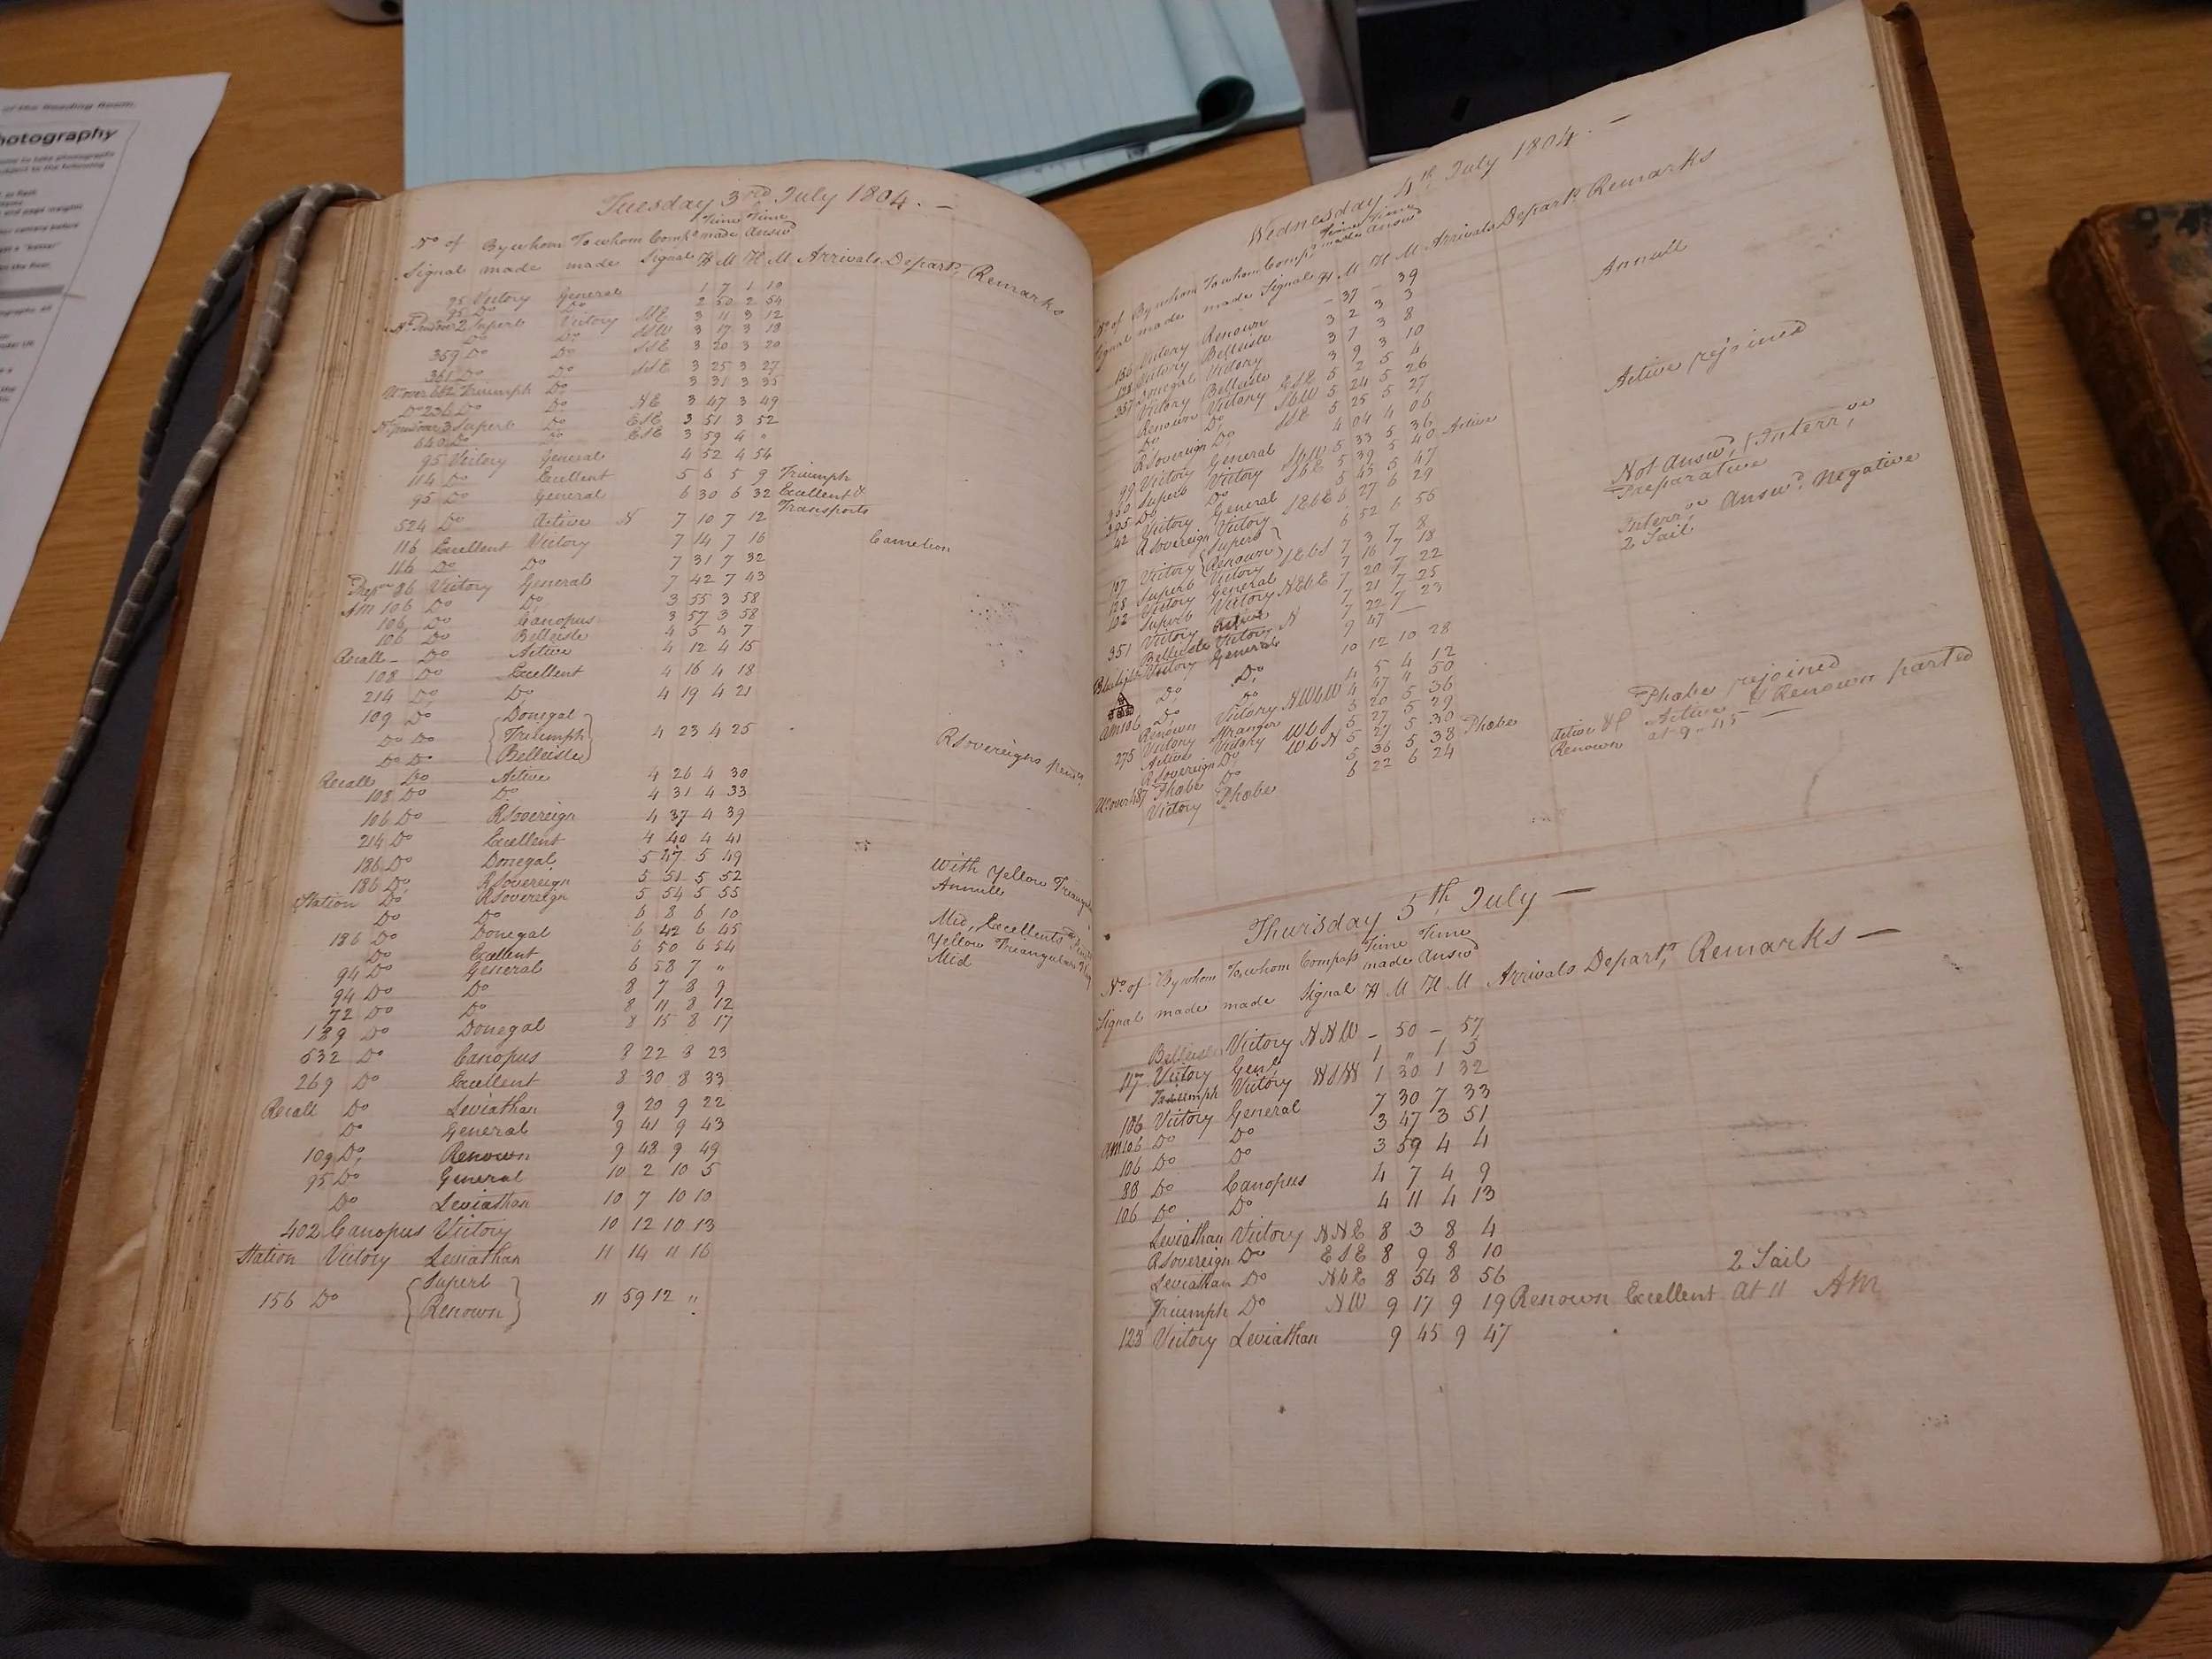 of the Reading Room.
hotography
Tuesday 3rd July 1804. —
Time Time
No of By whom To whom Comps made answd
Signal made made Signal H M H M Arrivals Depart, Remarks
95 Victory General 1 7 1 10
95 Do Do 2 50 2 54
2 Superb Victory 3 11 3 12
Do Do 3 17 3 18
359 Do Do SSE 3 20 3 20
361 Do Do SSE 3 25 3 27
Triumph Do 3 31 3 35
Do 236 Do Do NE 3 47 3 49
3 Superb Do ESE 3 51 3 52
640 Do Do ESE 3 59 4 "
95 Victory General 4 52 4 54
114 Do Excellent 5 6 5 9 Triumph
95 Do General 6 30 6 32 Excellent &
Transports
524 Do Active N 7 10 7 12
116 Excellent Victory 7 14 7 16 Camelion
116 Do Do 7 31 7 32
Prepve 86 Victory General 7 42 7 43
Am 106 Do Do 3 55 3 58
106 Do Canopus 3 57 3 58
106 Do Belleisle 4 5 4 7
Recall - Do Active 4 12 4 15
108 Do Excellent 4 16 4 18
214 Do Do 4 19 4 21
109 Do Donegal
Do Do Triumph 4 23 4 25
Do Do Belleisle
RSovereigns
Recall Do Active 4 26 4 30
108 Do Do 4 31 4 33
106 Do RSovereign 4 37 4 39
214 Do Excellent 4 40 4 41
186 Do Donegal 5 47 5 49
186 Do RSovereign 5 51 5 52 With Yellow
Station Do RSovereign 5 54 5 55 Annulls
Do Do 6 8 6 10
186 Do Donegal 6 42 6 45 Mid, Excellents
Do Excellent 6 50 6 54 Yellow Triangular
94 Do General 6 58 7 " Mid
94 Do Do 8 7 8 9
72 Do Do 8 11 8 12
189 Do Donegal 8 15 8 17
532 Do Canopus 8 22 8 23
269 Do Excellent 8 30 8 33
Recall Do Leviathan 9 20 9 22
Do General 9 41 9 43
109 Do Renown 9 48 9 49
95 Do General 10 2 10 5
Do Leviathan 10 7 10 10
402 Canopus Victory 10 12 10 13
Station Victory Leviathan 11 14 11 16
Superb
156 Do Renown 11 59 12 "
Wednesday 4th July 1804. —
Time Time
No of By whom To whom Comps made answd
Signal made made Signal H M H M Arrivals Depart, Remarks
136 Victory Renown - 37 - 39 Annull
128 Victory Belleisle 3 2 3 3
357 Donegal Victory 3 7 3 8
Victory Belleisle 3 9 3 10
Renown Victory ESE 5 2 5 4 Active rejoined
Do Do SbW 5 24 5 26
RSovereign Do SSE 5 25 5 27
99 Victory General 4 04 4 06
Superb Victory SbW 5 33 5 36
395 Do Do SbE 5 39 5 40 Active
42 Victory General 5 45 5 47 Not Answd, (Interrve
RSovereign Victory SEbE 6 27 6 29 Preparative
Superb
Victory Renown 6 52 6 55 Interrve Answd Negative
128 Superb Victory SEbS 7 3 7 8 2 Sail
102 Victory General 7 16 7 18
Superb Victory NEbE 7 20 7 22
351 Victory Active 7 21 7 25
Belleisle Victory N 7 22 7 23
Blue light Victory General 9 47 —
Do Do 10 12 10 28
Am 106 Do Do 4 5 4 12
Renown Victory NWbW 4 47 4 50
275 Victory Stranger 5 20 5 36
Active Victory WbS 5 27 5 29 Phobe rejoined
RSovereign Do WbN 5 27 5 30 Active & Renown parted
487 Phobe Do 5 36 5 38 Phobe Renown at 9 .. 45 —
Victory Phobe 6 22 6 24
Thursday 5th July —
Time Time
No of By whom To whom Compass made answd
Signal made made Signal H M H M Arrivals Depart, Remarks —
Belleisle Victory NNW - 50 - 57
117 Victory Genl 1 " 1 5
Triumph Victory WSW 1 30 1 32
106 Victory General 7 30 7 33
Am 106 Do Do 3 47 3 51
106 Do Do 3 59 4 4
88 Do Canopus 4 7 4 9
106 Do Do 4 11 4 13
Leviathan Victory NNE 8 3 8 4
RSovereign Do ESE 8 9 8 10
Leviathan Do NbE 8 54 8 56 2 Sail
Triumph Do NW 9 17 9 19 Renown Excellent at 11 AM
128 Victory Leviathan 9 45 9 47